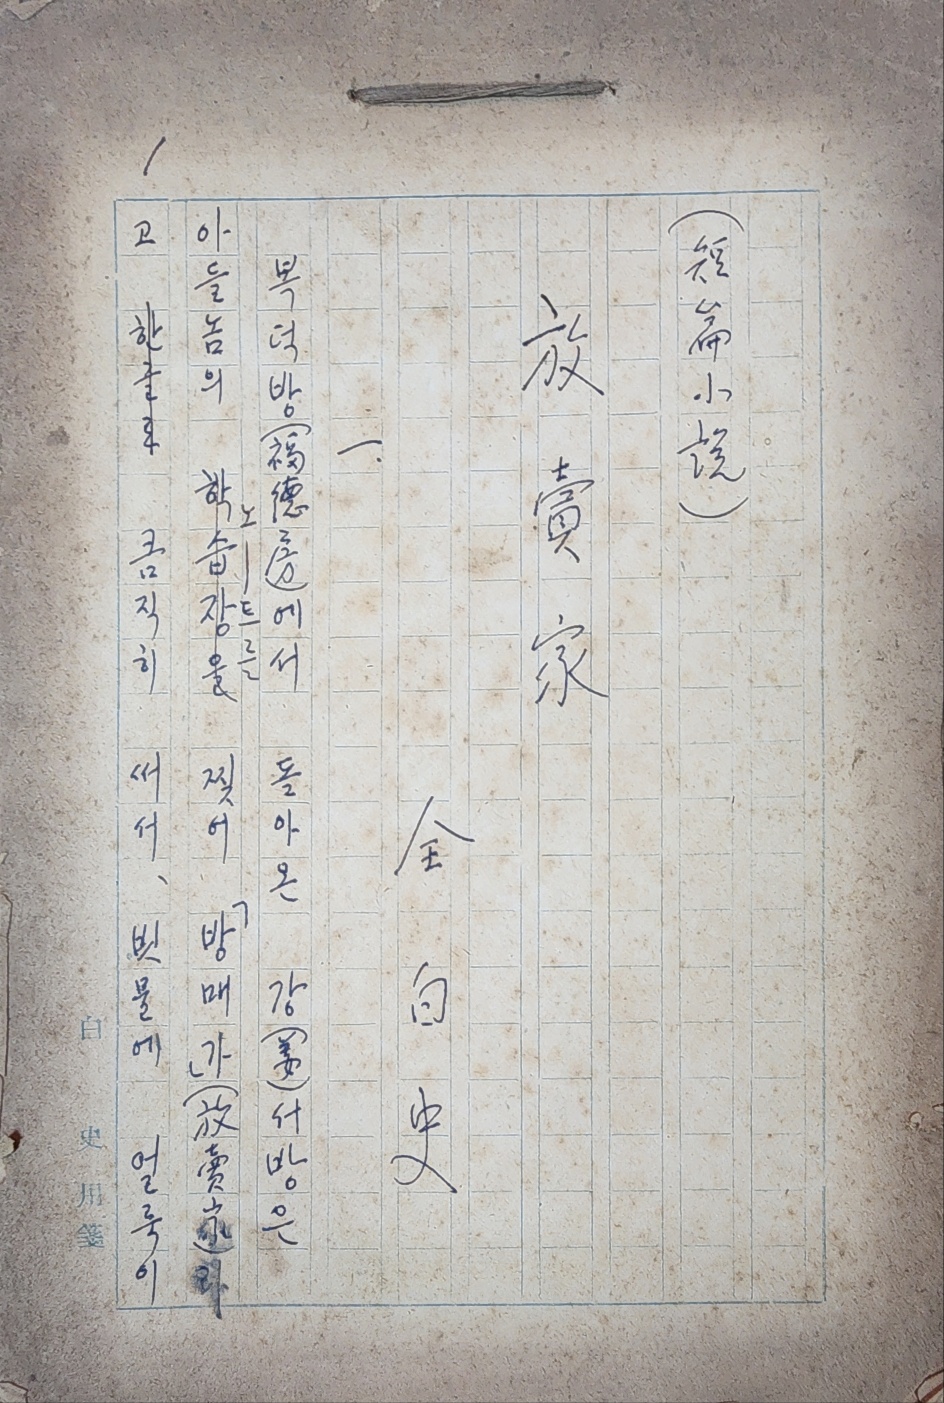 (短篇小說)
放賣家
全白史
一.
복덕방(福德房)에서 돌아온 강(姜)서방은
아들놈의 학습장을 찢어 「방매가」(放賣家)라
노ー트를
고 한글로 큼직히 써서、빗물에 얼룩이
1
白史用箋